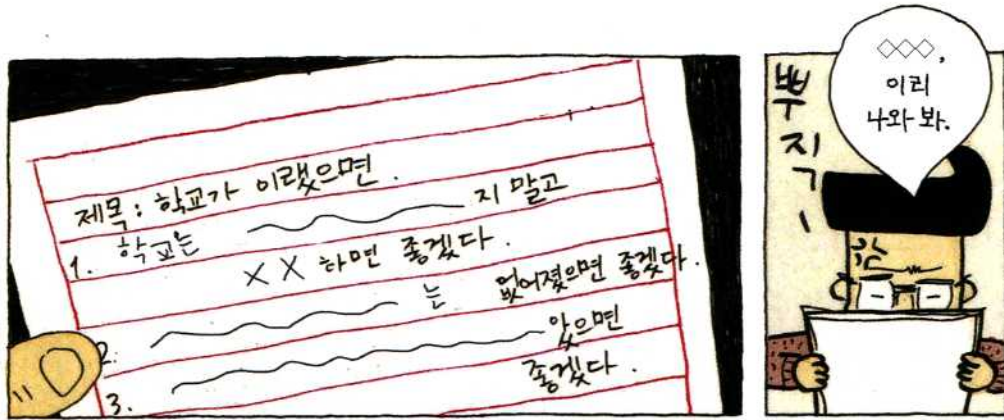 제목: 학교가 이랬으면.
1. 학교는 지 말고
XX 하면 좋겠다.
2. 는 없어졌으면 좋겠다.
3. 았으면
좋겠다.
◇◇◇,
이리
나와 봐.
뿌직